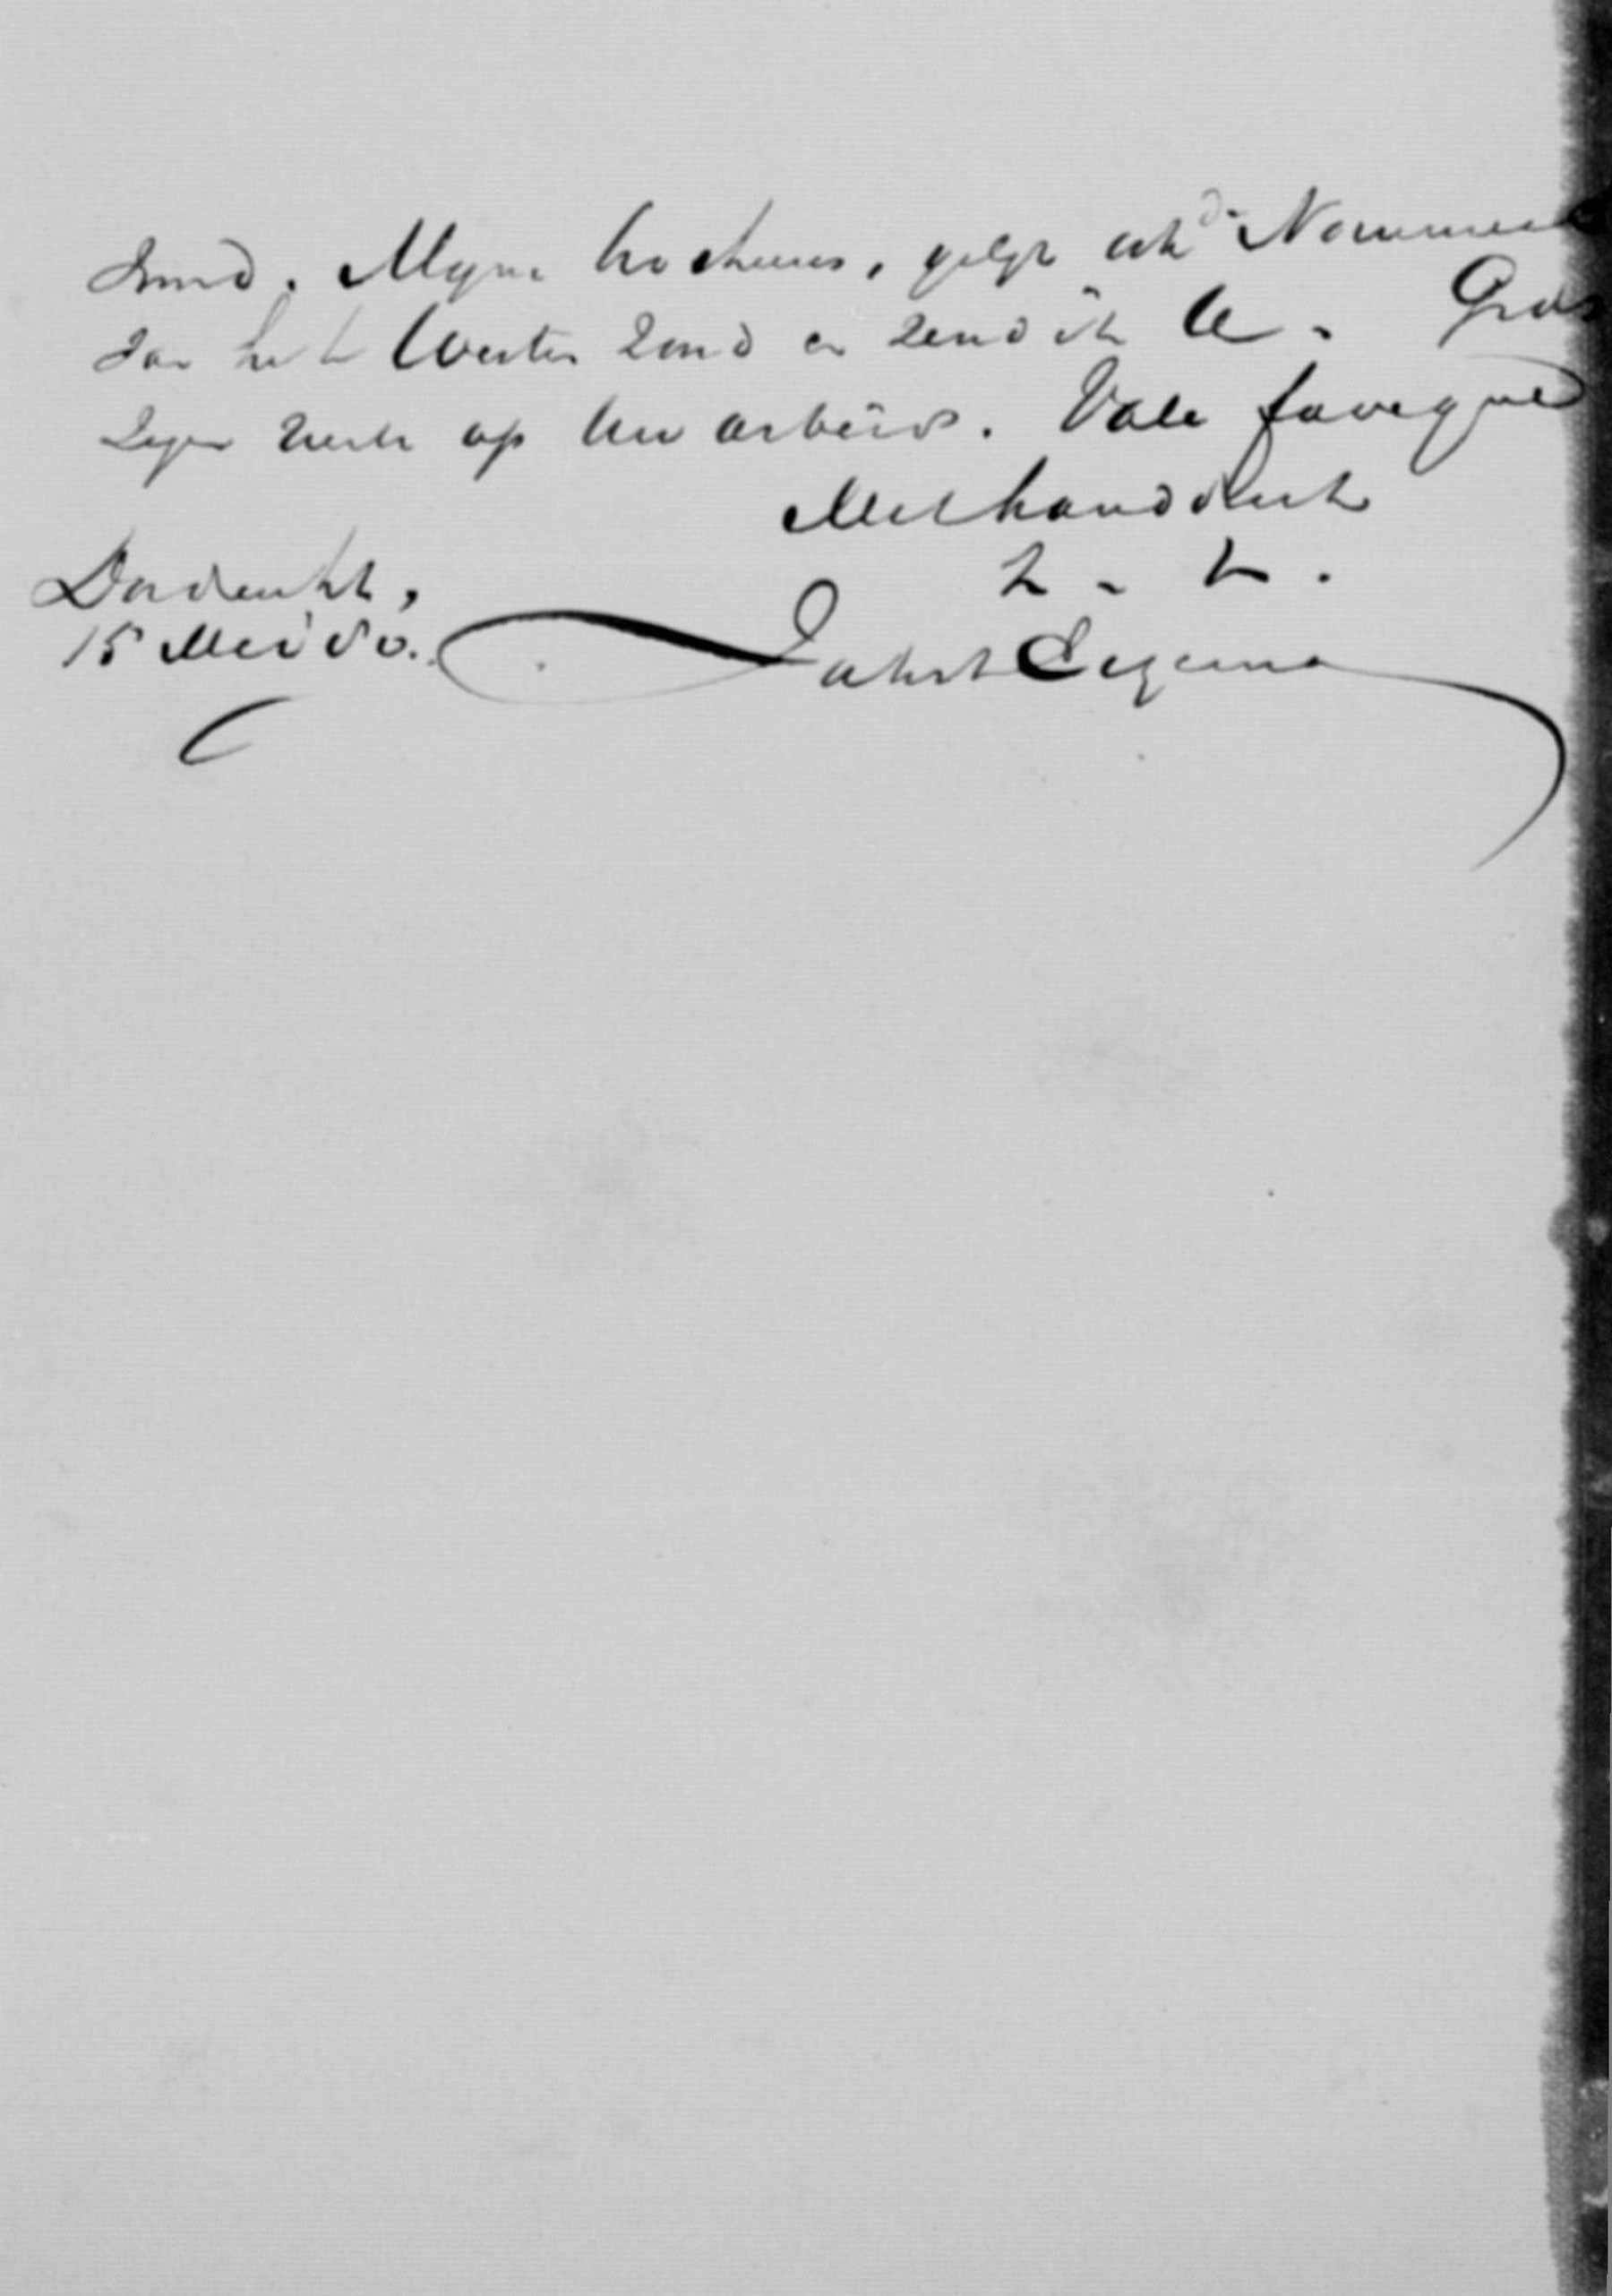 zond. Mijne brochures, gelijk ook de Nommers
van het Wester zond en zend ik U. Gods
zegen ruste op Uw arbeid. Vale faveque
Met handdruk
t. t.
Dordrecht,
15 Mei 80.